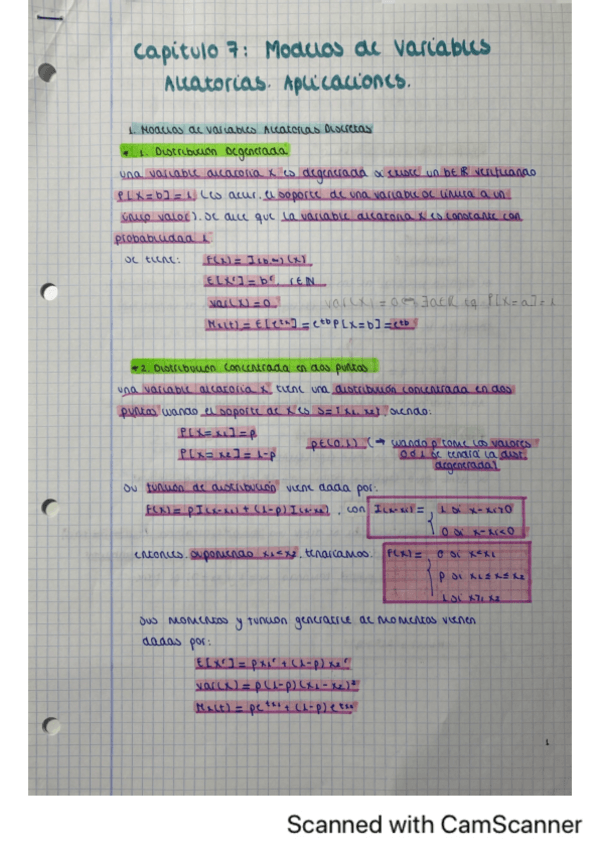 Capítulo 7: Modelos de Variables
Aleatorias. Aplicaciones.
1. Modelos de Variables Aleatorias Discretas
* 1. Distribución Degenerada
una variable aleatoria X es degenerada si existe un b∈ℝ verificando
P[X=b]=1 (es decir, el soporte de una variable se limita a un
único valor). Se dice que la variable aleatoria X es constante con
probabilidad 1
Se tiene: F(x) = I(b,∞)(x)
E[Xʳ] = bʳ, r∈ℕ
Var(X)=0 Var(X)=0 ⇔ ∃a∈ℝ tq P[X=a]=1
Mx(t) = E[eᵗˣ] = eᵗᵇ P[X=b] = eᵗᵇ
* 2. Distribución Concentrada en dos puntos
una variable aleatoria X tiene una distribución concentrada en dos
puntos cuando el soporte de X es S={x₁, x₂}, siendo:
P[X=x₁]=p
P[X=x₂]=1-p p∈(0,1) (→ cuando p tome los valores
0 ó 1 se tendrá la dist.
degenerada)
Su función de distribución viene dada por:
F(x) = p I(x-x₁) + (1-p) I(x-x₂), con I(x-xi) = { 1 si x-xi ≥ 0
0 si x-xi < 0
entonces, suponiendo x₁<x₂, tendríamos: F(x) = { 0 si x<x₁
p si x₁≤x≤x₂
1 si x≥x₂
Sus momentos y función generatriz de momentos vienen
dadas por:
E[Xʳ] = px₁ʳ + (1-p) x₂ʳ
Var(X) = p(1-p)(x₁-x₂)²
Mx(t) = peᵗˣ¹ + (1-p) eᵗˣ²
1
Scanned with CamScanner